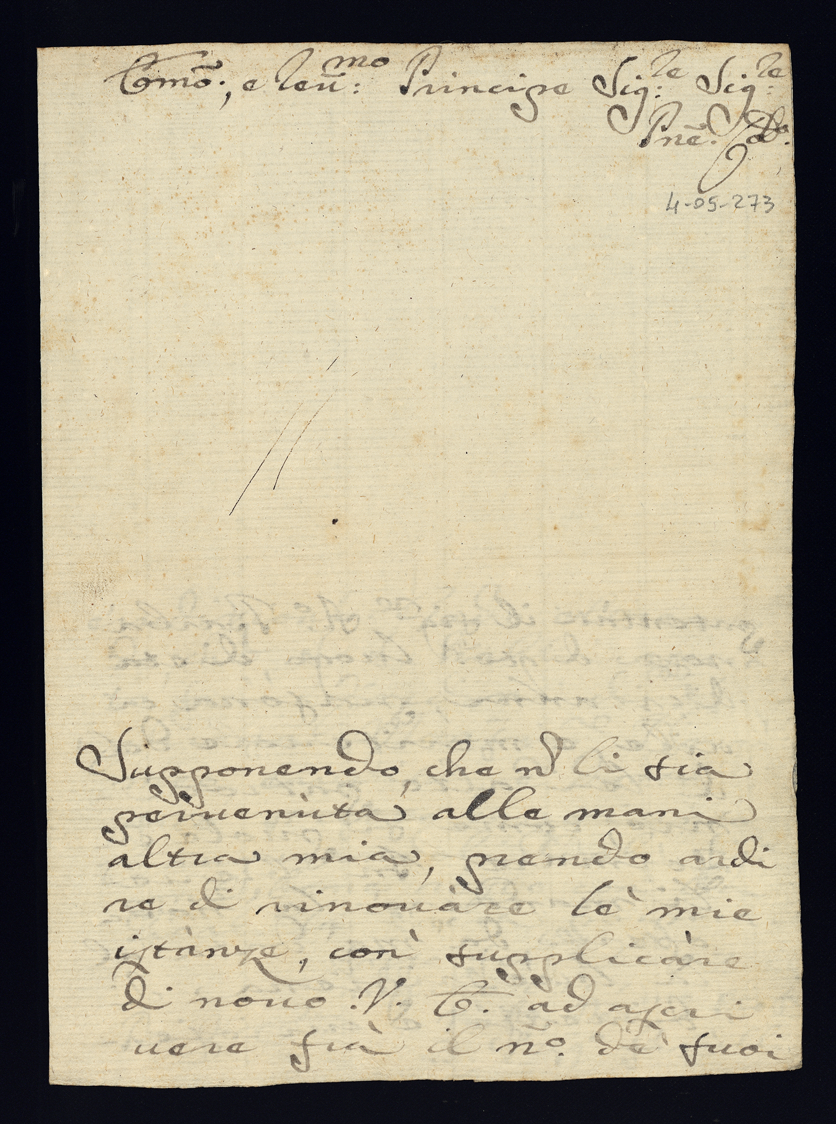 Emõ:, e Reu:mo Principe Sig:re Sig:re
Pnẽ. Col:o
4-05-273
Supponendo, che nõ li sia
peruenuta alle mani
altra mia, prendo ardi
re di rinouare le mie
istanze, con supplicare
di nouo .V. E. ad ascri
uere frà il nõ. dè suoi